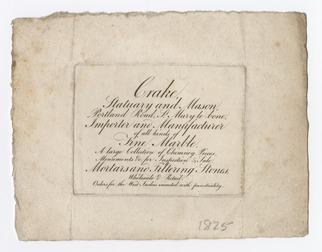 Crake,
Statuary and Mason
Portland Road, St. Mary le bone,
Importer and Manufacturer
of all kinds of
Fine Marble.
A large Collection of Chimney Pieces,
Monuments &c for Inspection & Sale.
Mortars and Filtering Stones,
Wholesale & Retail.
Orders for the West Indies executed with punctuality.
1825